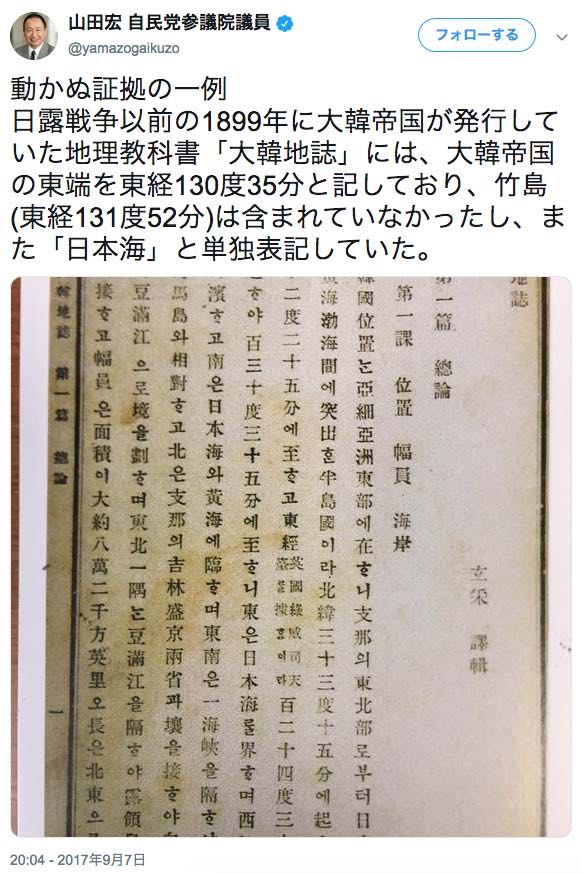 山田宏 自民党参議院議員
@yamazogaikuzo
フォローする
動かぬ証拠の一例
日露戦争以前の1899年に大韓帝国が発行して
いた地理教科書「大韓地誌」には、大韓帝国
の東端を東経130度35分と記しており、竹島
(東経131度52分)は含まれていなかったし、ま
た「日本海」と単独表記していた。
地誌
第一篇 總論
玄采 譯輯
第一課 位置 幅員 海岸
韓國位置는亞細亞洲東部에在ᄒᆞ니支那의東北部로부터日
黃海渤海間에突出ᄒᆞᆫ半島國이라北緯三十三度十五分에起
二度二十五分에至ᄒᆞ고東經英國綠威司天臺를據홈이라百二十四度三
ᄒᆞ야百三十度三十五分에至ᄒᆞ니東은日本海를界ᄒᆞ며西
濱ᄒᆞ고南은日本海와黃海에臨ᄒᆞ며東南은一海峽을隔ᄒᆞ
馬島와相對ᄒᆞ고北은支那의吉林盛京兩省과壤을接ᄒᆞ야
豆滿江으로境을劃ᄒᆞ며東北一隅는豆滿江을隔ᄒᆞ야露領
接ᄒᆞ고幅員은面積이大約八萬二千方英里오長은北東으
韓地誌 第一篇 總論 一
20:04 - 2017年9月7日